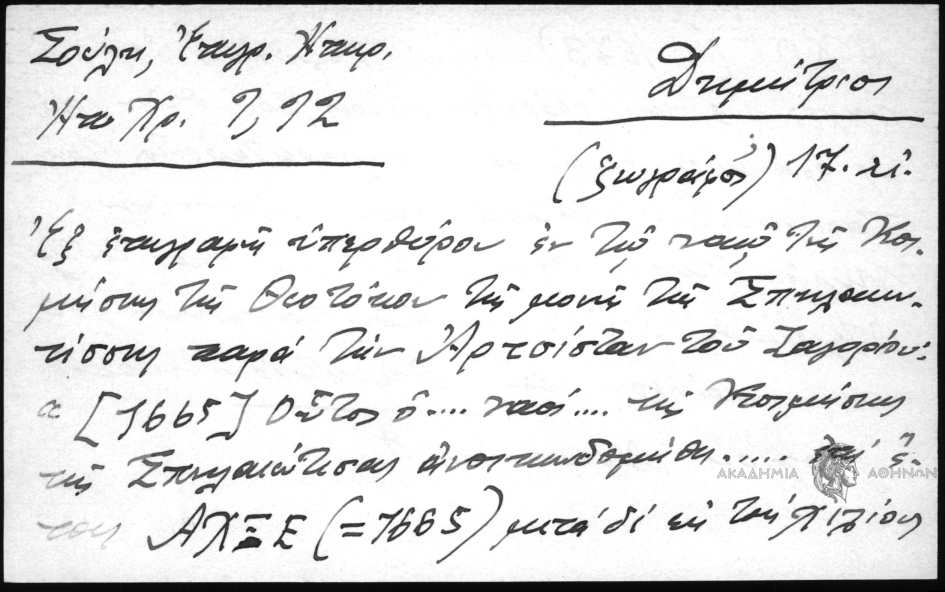 Σούλη, Ἐπιγρ. Ἠπειρ.
Ἠπ. Χρ. 9, 92
Δημήτριος
(ζωγράφος) 17. αἰ.
Ἐξ ἐπιγραφῆς ὑπερθύρου ἐν τῷ ναῷ τῆς Κοι-
μήσεως τῆς Θεοτόκου τῆς μονῆς τῆς Σπηλαιω-
τίσσης παρὰ τὴν Ἀρτσίσταν τοῦ Ζαγορίου:
[1665] Οὗτος ὁ .... ναός .... τῆς Κοιμήσεως
τῆς Σπηλαιώτισας ἀνοικωδομήθη ...... ἐπὶ ἔ-
τους ΑΧΞΕ (=1665) μετὰ δὲ ἐκ τοὺς χιλίους
ΑΚΑΔΗΜΙΑ ΑΘΗΝΩΝ